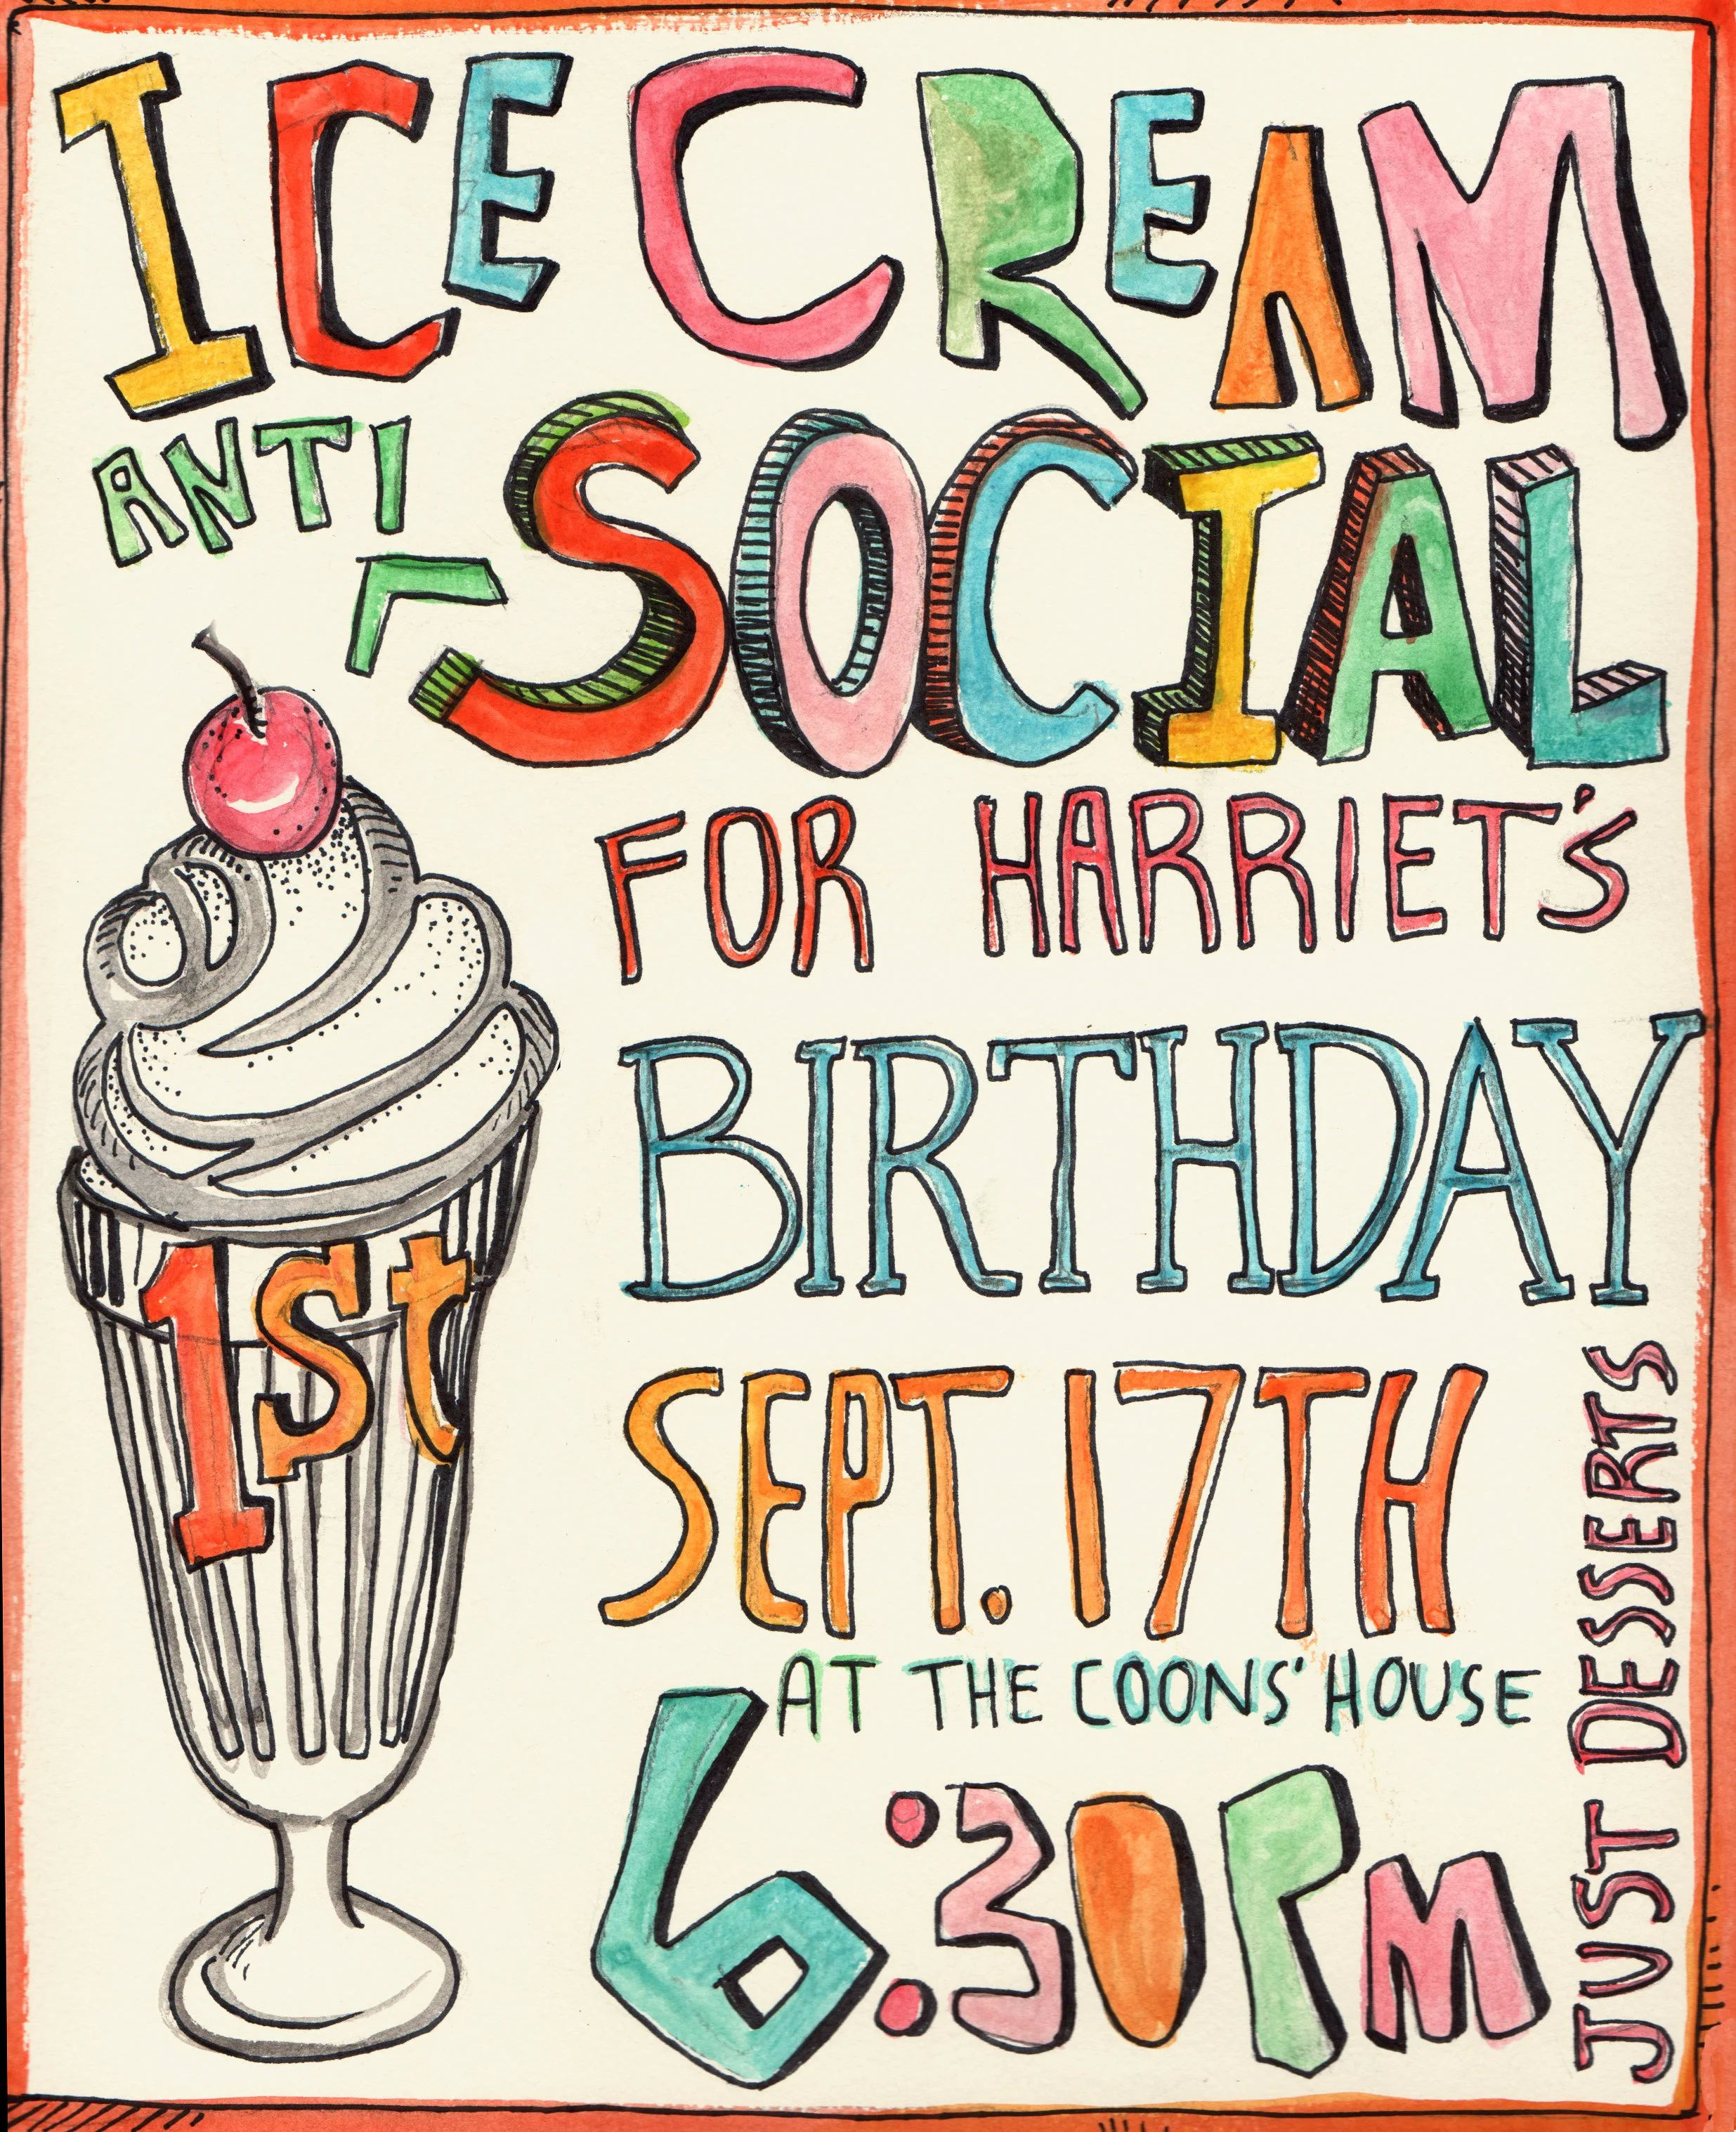 ICE CREAM
ANTI
SOCIAL
FOR HARRIET'S
1st
BIRTHDAY
SEPT. 17TH
AT THE COONS' HOUSE
6:30 PM
JUST DESSERTS